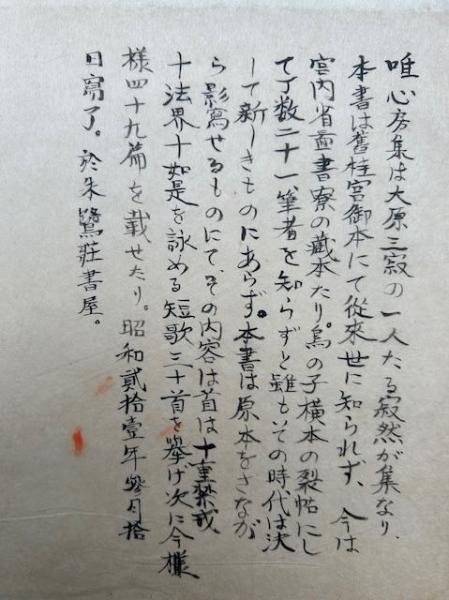 唯心房集は大原三寂の一人たる寂然が集なり、
本書は舊桂宮御本にて從來世に知られず、今は
宮内省圖書寮の藏本たり。鳥の子横本の裂帖にし
て丁数二十一、筆者を知らずと雖もその時代は決
して新しきものにあらず。本書は原本をさなが
ら影寫せるものにて、その内容は首は十重禁戒、
十法界十如是を詠める短歌三十首を擧げ次に今樣
様四十九篇を載せたり。昭和貳拾壹年 月拾
日寫了。於朱鷺莊書屋。